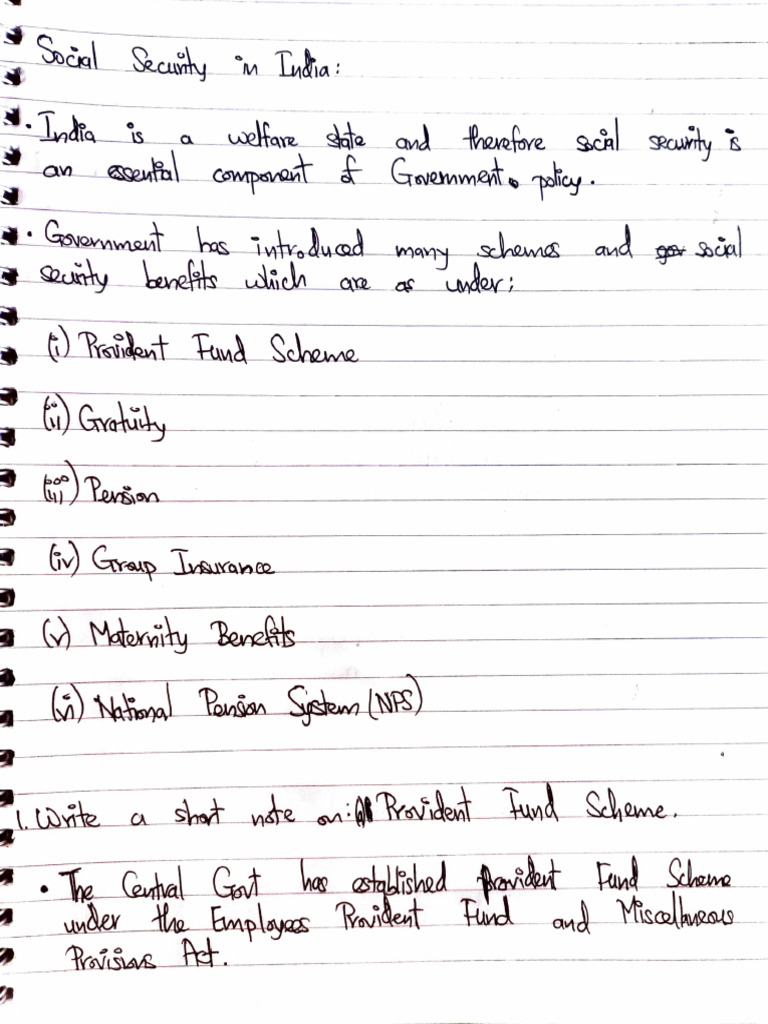 Social Security in India:
• India is a welfare state and therefore social security is
an essential component of Government policy.
• Government has introduced many schemes and social
security benefits which are as under;
(i) Provident Fund Scheme
(ii) Gratuity
(iii) Pension
(iv) Group Insurance
(v) Maternity Benefits
(vi) National Pension System (NPS)
1. Write a short note on: Provident Fund Scheme.
• The Central Govt has established Provident Fund Scheme
under the Employees Provident Fund and Miscellaneous
Provisions Act.